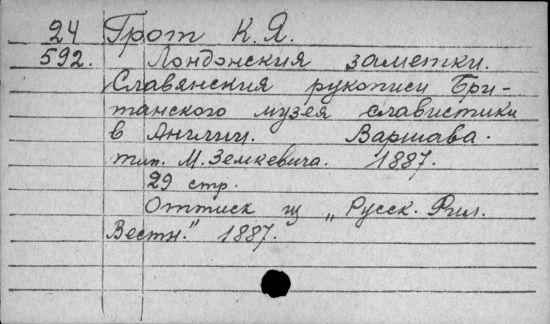 24 Грот К. Я.
592. Лондонския заметки.
Славянския рукописи Бри-
танского музея славистики
в Англии. Варшава.
тип. М. Земкевича. 1887.
29 стр.
Оттиск из „Русск. Фил.
Вестн." 1887.